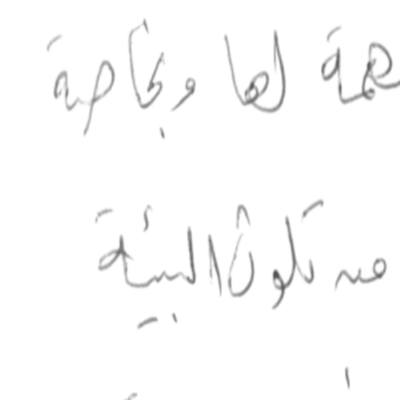 همة لها وبخاصة
من تلوث البيئة